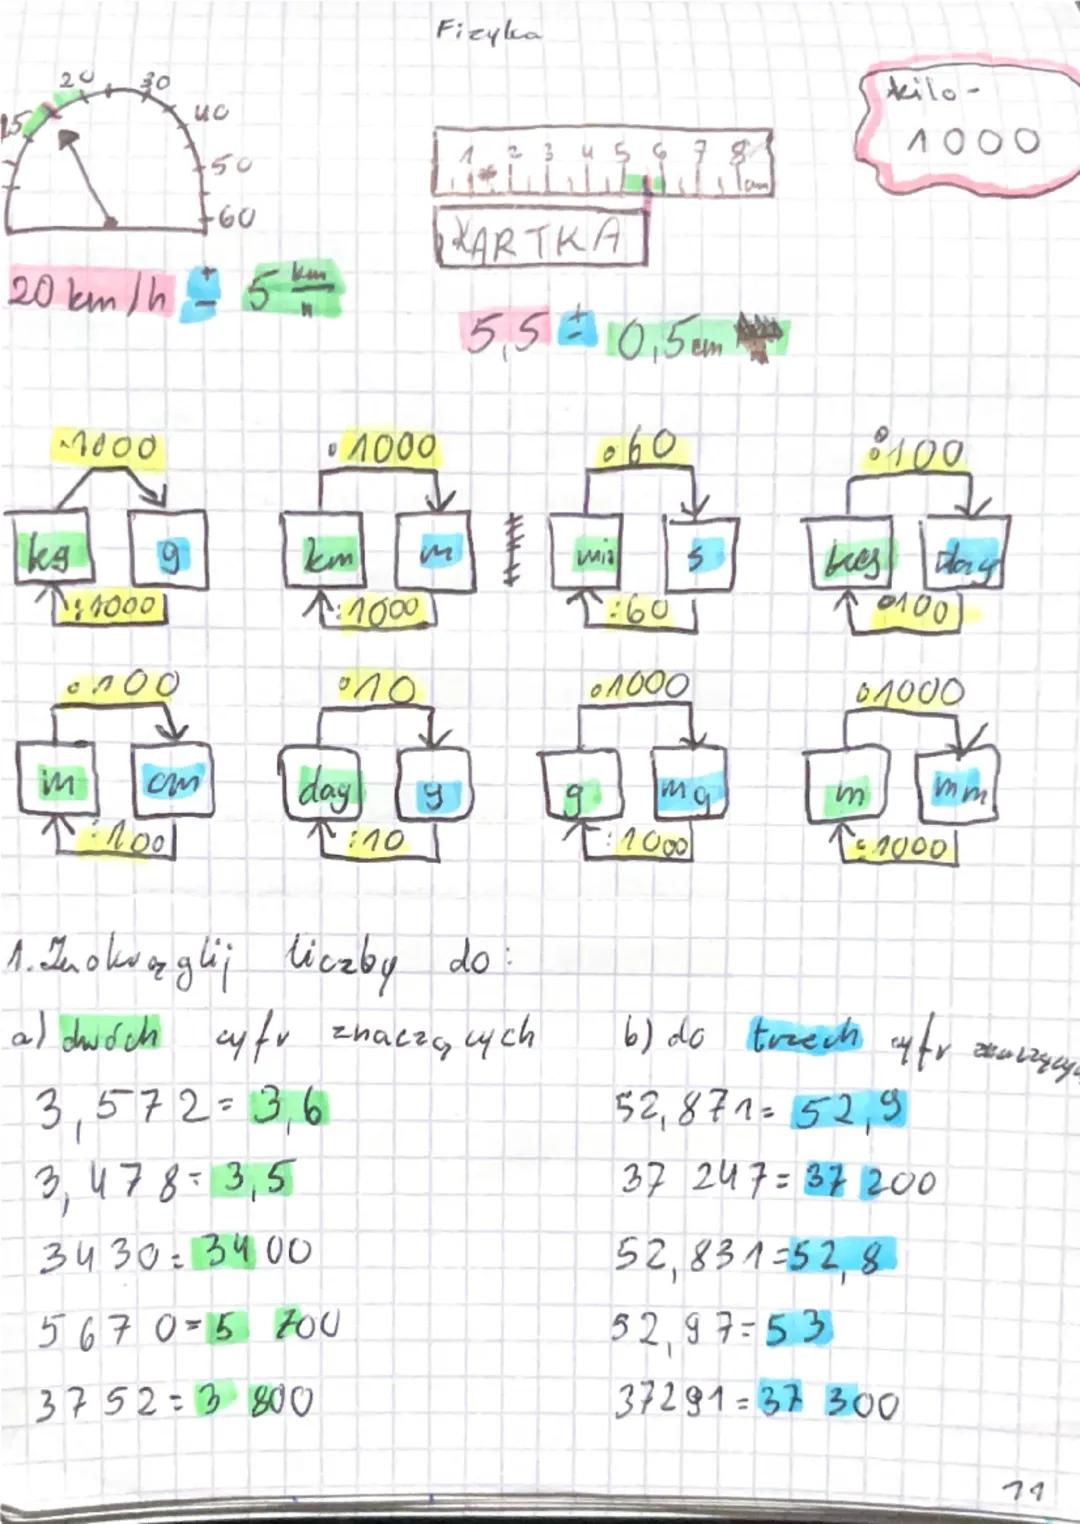 Fizyka
20 30
15 40
50
60
kilo-
1000
1 2 3 4 5 6 7 8
cm
KARTKA
20 km/h ± 5 km/h
5,5 ± 0,5 cm
·1000 ·1000 ·60 ·100
kg g km m min s kg dag
:1000 :1000 :60 :100
·100 ·10 ·1000 ·1000
m cm dag g g mg m mm
:100 :10 :1000 :1000
1. Zaokrąglij liczby do:
a) dwóch cyfr znaczących b) do trzech cyfr znaczących
3,572 = 3,6 52,871 = 52,9
3,478 = 3,5 37 247 = 37 200
3430 = 3400 52,831 = 52,8
5670 = 5 700 52,97 = 53
3752 = 3 800 37291 = 37 300
11